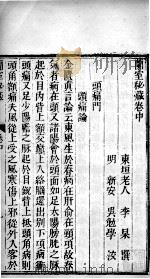 蘭室秘藏卷中
東垣老人 李杲 撰
明 新安 吳勉學 挍
頭痛門
頭痛論
金匱真言論云東風生於春病在肝俞在頸項故春
氣者病在頭又諸陽會於頭面如足太陽膀胱之脉
起於目内眥上額交巔上入絡腦還出别下項病衝
頭痛又足少陽膽之脉起於目銳眥上抵頭角病則
頭角額痛夫風從上受之風寒傷上邪從外入客